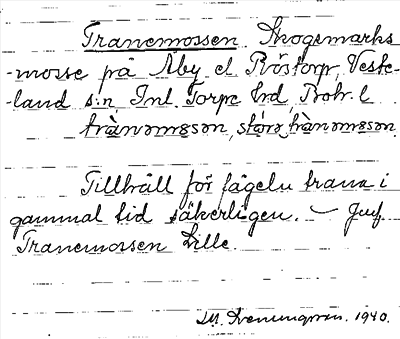 Tranemossen Skogsmarks
-mosse på Åby el. Röstorp, Veste-
-land s:n, Inl. Torpe hrd, Boh. l.
trànəmɷsən, stórə trànəmɷsən.
Tillhåll för fågeln trana i
gammal tid säkerligen. – Jmf.
Tranemossen Lille.
1940.